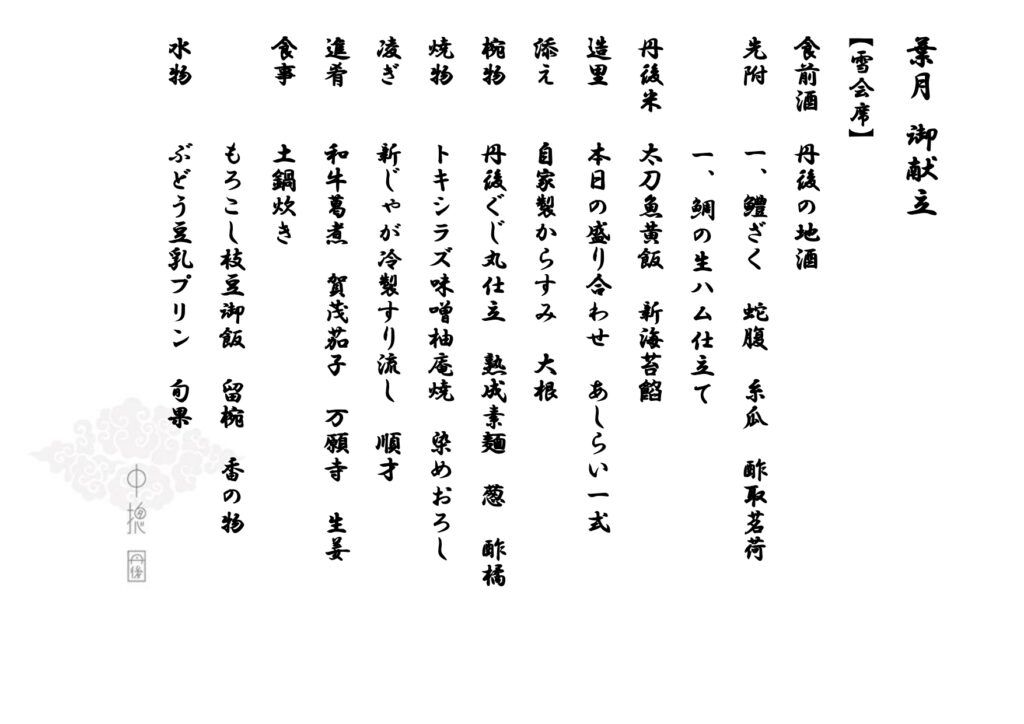 葉月 御献立
【雪会席】
食前酒 丹後の地酒
先附 一、鱧ざく 蛇腹 糸瓜 酢取茗荷
一、鯛の生ハム仕立て
丹後米 太刀魚黄飯 新海苔餡
造里 本日の盛り合わせ あしらい一式
添え 自家製からすみ 大根
椀物 丹後ぐじ丸仕立 熟成素麺 葱 酢橘
焼物 トキシラズ味噌柚庵焼 染めおろし
凌ぎ 新じゃが冷製すり流し 順才
進肴 和牛葛煮 賀茂茄子 万願寺 生姜
食事 土鍋炊き
もろこし枝豆御飯 留椀 香の物
水物 ぶどう豆乳プリン 旬果
丹後